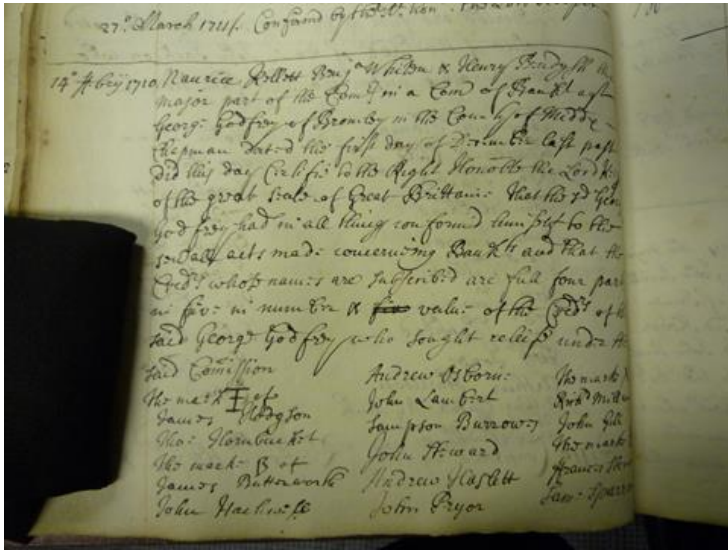 27º March 1711/. Confirmed by the
14º ffbry 1710. Maurice Kellett Benja Whitten & Henry the
major part of the Comrs in a Com of Bankt agst
George Godfrey of Bromley in the County of Middx
Chapman dated the first day of December last past
Did this day Certifie to the Right Honoble the Lord
of the great seale of Great Brittaine That the sd Geor
Godfrey had in all things conformd himself to the
severall acts made concerning Bankts and that the
Credrs whose names are subscribed are full four part
in five in number & value of the Credrs of the
said George Godfrey who sought reliefe under the
said Comission
The mark of
James Hodgson
Thos Hornbucket
The marke B of
James Butterworth
John Hackwell
Andrew Osborne
John Lambert
Sampson Burrowes
John Steward
Andrew Haslett
John Pryor
The marke
Richd
John
The marke
Francis
Saml Sparro